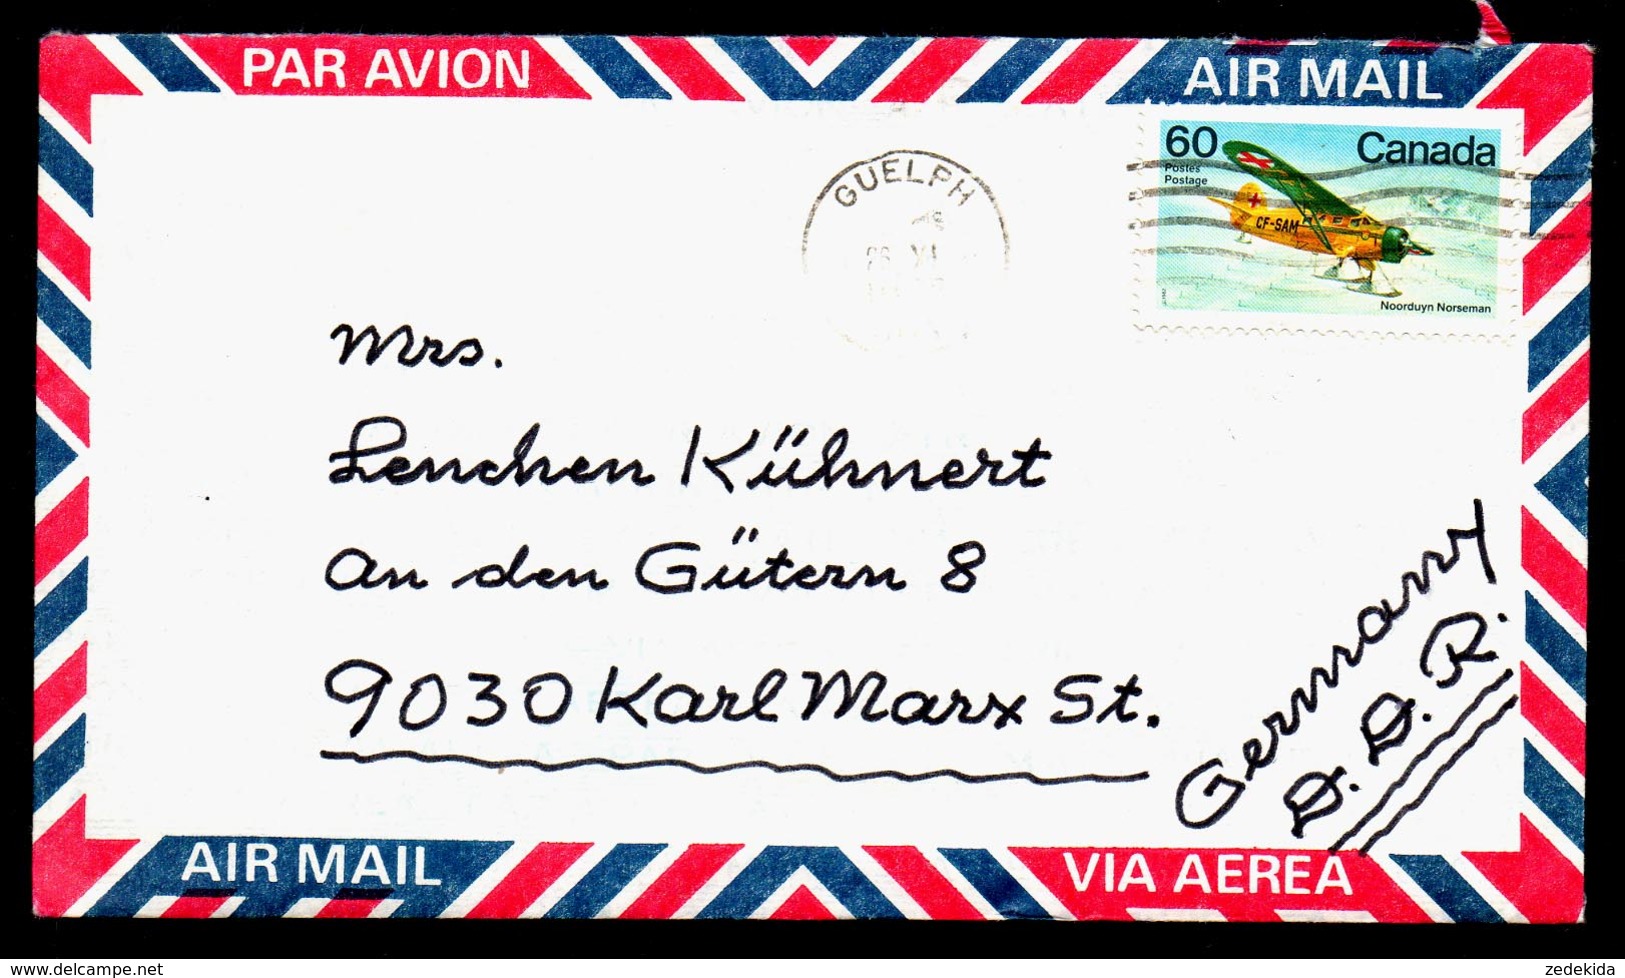 PAR AVION
AIR MAIL
60 Canada
Postes
Postage
CF-SAM
Noorduyn Norseman
GUELPH
Mrs.
Lenchen Kühnert
an den Gütern 8
9030 Karl Marx St.
Germany
D.D.R.
AIR MAIL
VIA AEREA
delcampe.net
zedekida